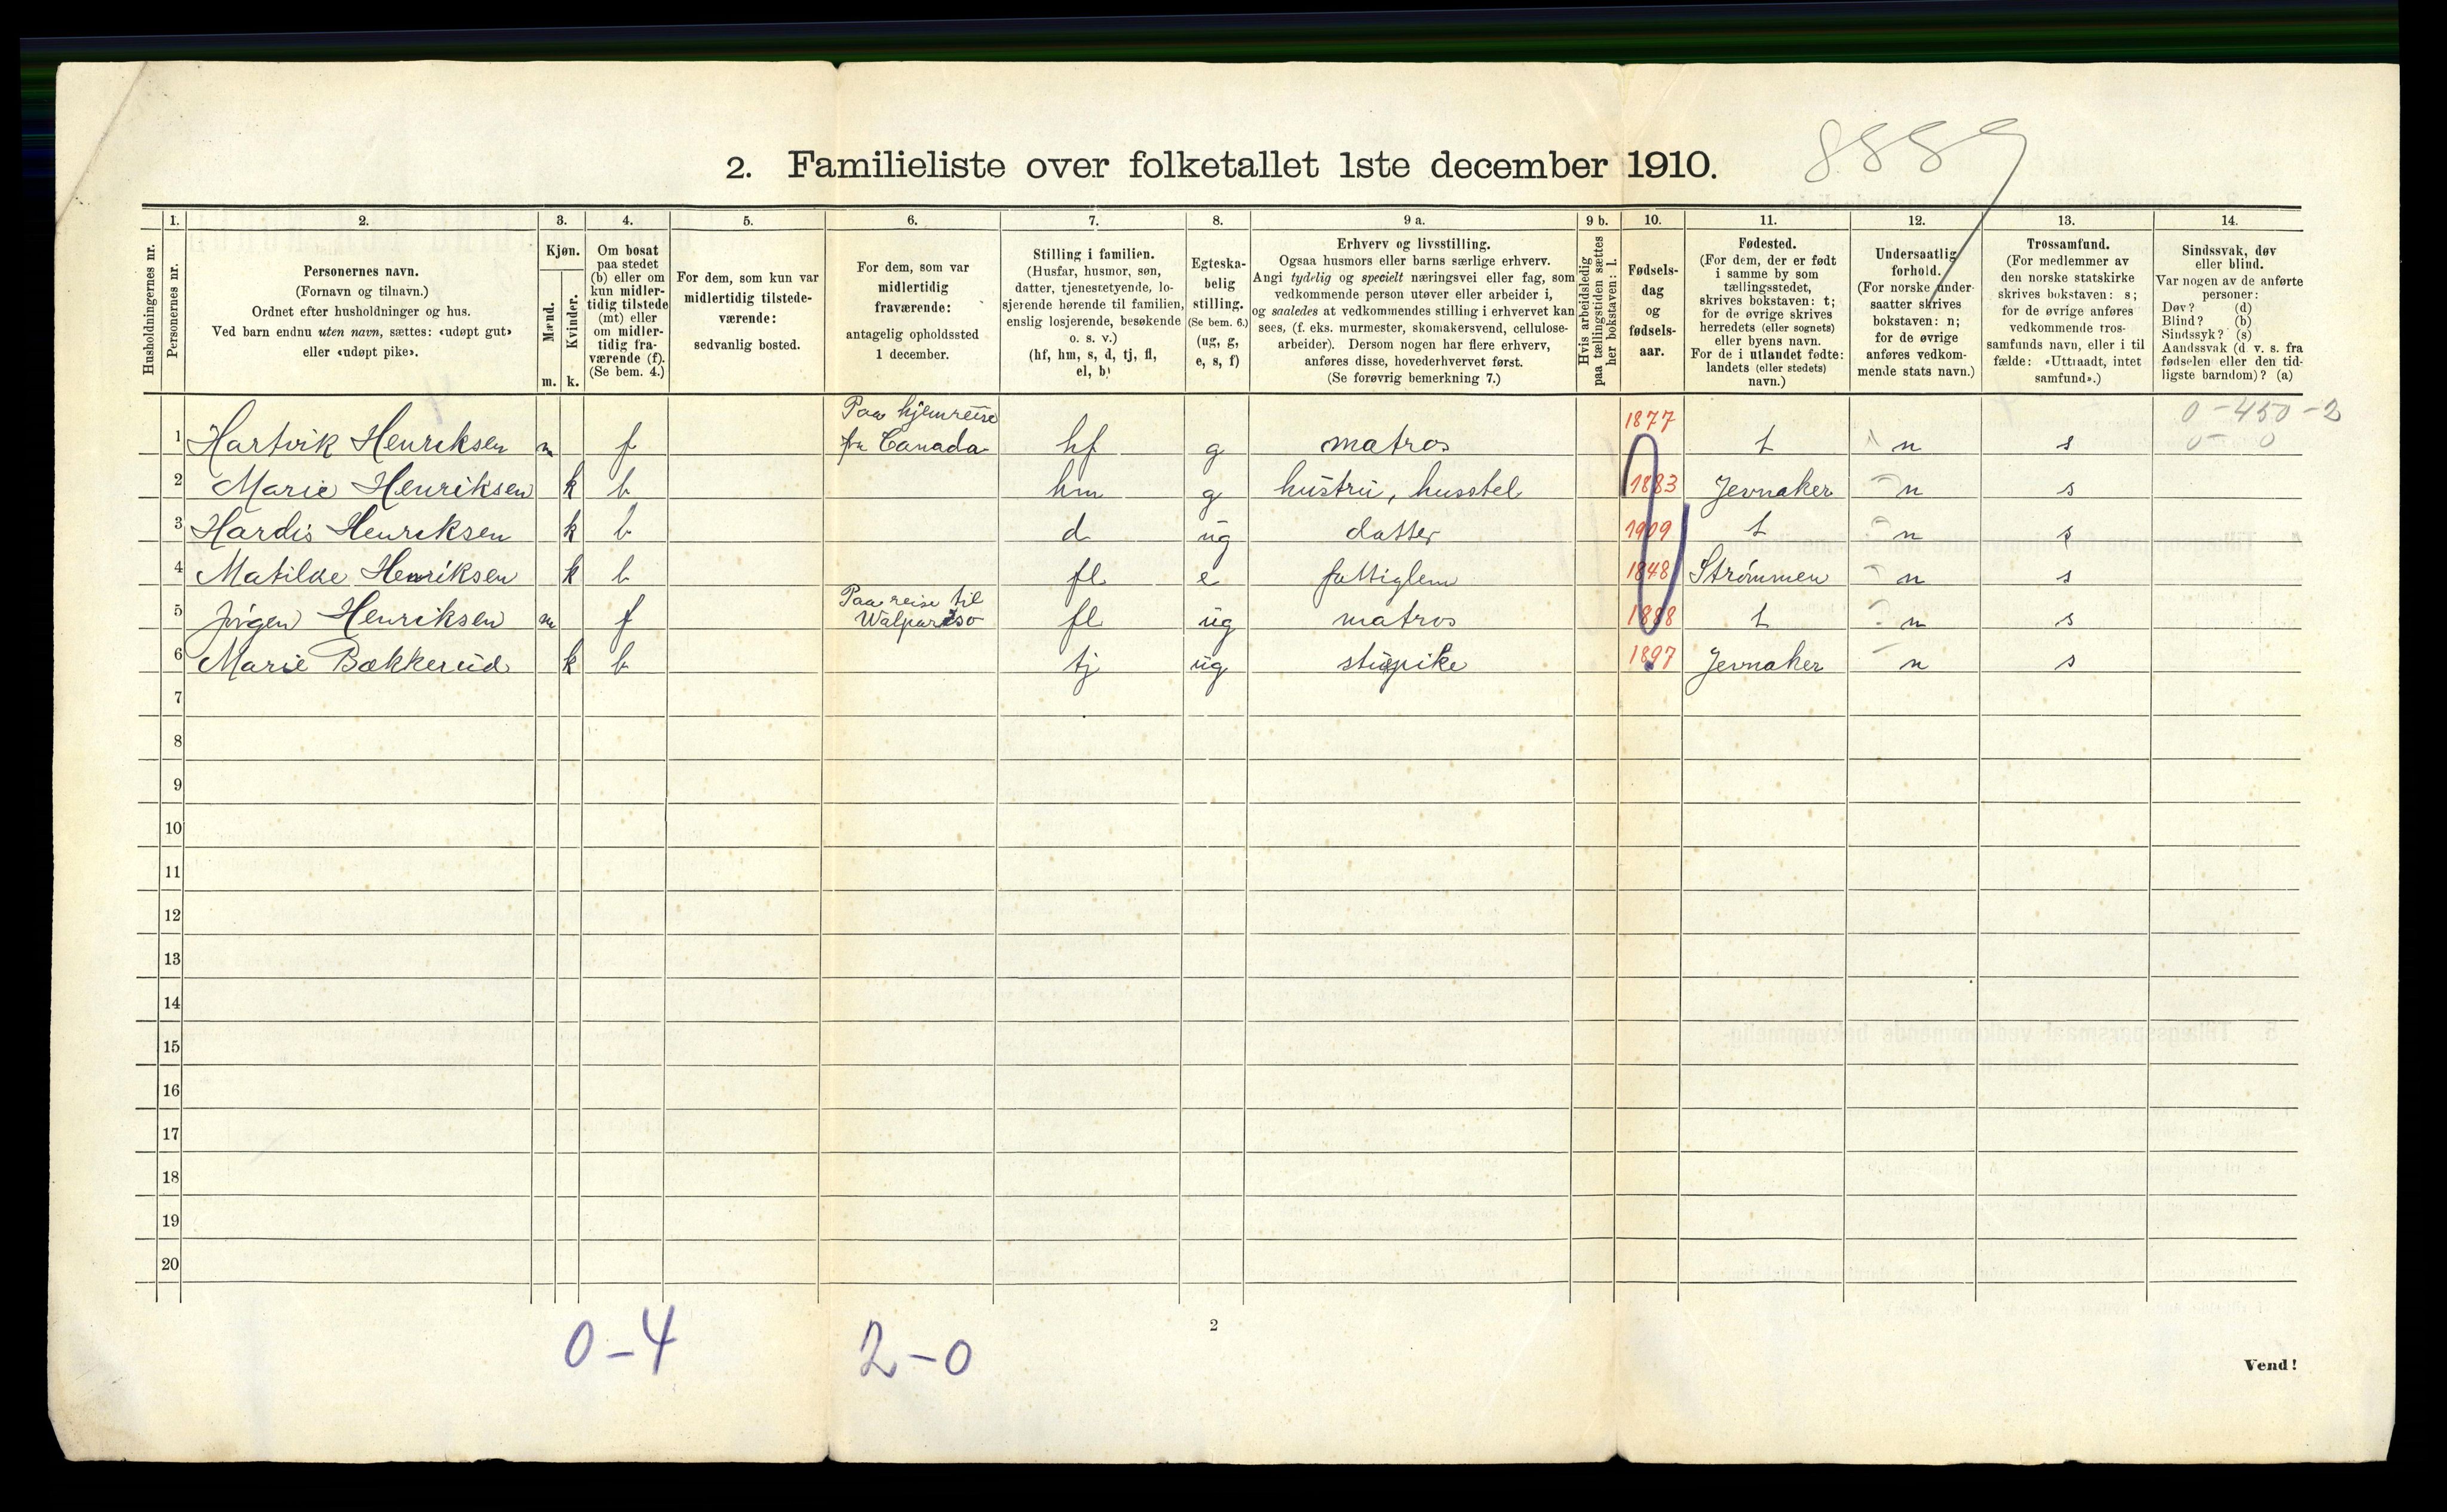 8889
2. Familieliste over folketallet 1ste december 1910.
Husholdningernes nr.
1. Personernes nr.
2. Personernes navn. (Fornavn og tilnavn.) Ordnet efter husholdninger og hus. Ved barn endnu uten navn, sættes: «udøpt gut» eller «udøpt pike».
3. Kjøn. Mænd. m. Kvinder. k.
4. Om bosat paa stedet (b) eller om kun midlertidig tilstede (mt) eller om midlertidig fraværende (f). (Se bem. 4.)
5. For dem, som kun var midlertidig tilstedeværende: sedvanlig bosted.
6. For dem, som var midlertidig fraværende: antagelig opholdssted 1 december.
7. Stilling i familien. (Husfar, husmor, søn, datter, tjenestetyende, losjerende hørende til familien, enslig losjerende, besøkende o. s. v.) (hf, hm, s, d, tj, fl, el, b)
8. Egteskabelig stilling. (Se bem. 6.) (ug, g, e, s, f)
9 a. Erhverv og livsstilling. Ogsaa husmors eller barns særlige erhverv. Angi tydelig og specielt næringsvei eller fag, som vedkommende person utøver eller arbeider i, og saaledes at vedkommendes stilling i erhvervet kan sees, (f. eks. murmester, skomakersvend, cellulosearbeider). Dersom nogen har flere erhverv, anføres disse, hovederhvervet først. (Se forøvrig bemerkning 7.)
9 b. Hvis arbeidsledig paa tællingstiden sættes her bokstaven: l.
10. Fødselsdag og fødselsaar.
11. Fødested. (For dem, der er født i samme by som tællingsstedet, skrives bokstaven: t; for de øvrige skrives herredets (eller sognets) eller byens navn. For de i utlandet fødte: landets (eller stedets) navn.)
12. Undersaatlig forhold. (For norske undersaatter skrives bokstaven: n; for de øvrige anføres vedkommende stats navn.)
13. Trossamfund. (For medlemmer av den norske statskirke skrives bokstaven: s; for de øvrige anføres vedkommende trossamfunds navn, eller i tilfælde: «Uttraadt, intet samfund».)
14. Sindssvak, døv eller blind. Var nogen av de anførte personer: Døv? (d) Blind? (b) Sindssyk? (s) Aandssvak (d. v. s. fra fødselen eller den tidligste barndom)? (a)
0-450-2
0- 0
1 Hartvik Henriksen m f Paa hjemreise fra Canada hf g matros 1877 t n s
2 Marie Henriksen k b hm g hustru, husstel 1883 Jevnaker n s
3 Hardis Henriksen k b d ug datter 1909 t n s
4 Matilde Henriksen k b fl e fattiglem 1848 Strømmen n s
5 Jørgen Henriksen m f Paa reise til Walpariso fl ug matros 1888 t n s
6 Marie Bækkerud k b tj ug stuepike 1897 Jevnaker n s
7
8
9
10
11
12
13
14
15
16
17
18
19
20
0-4 2-0
2
Vend!